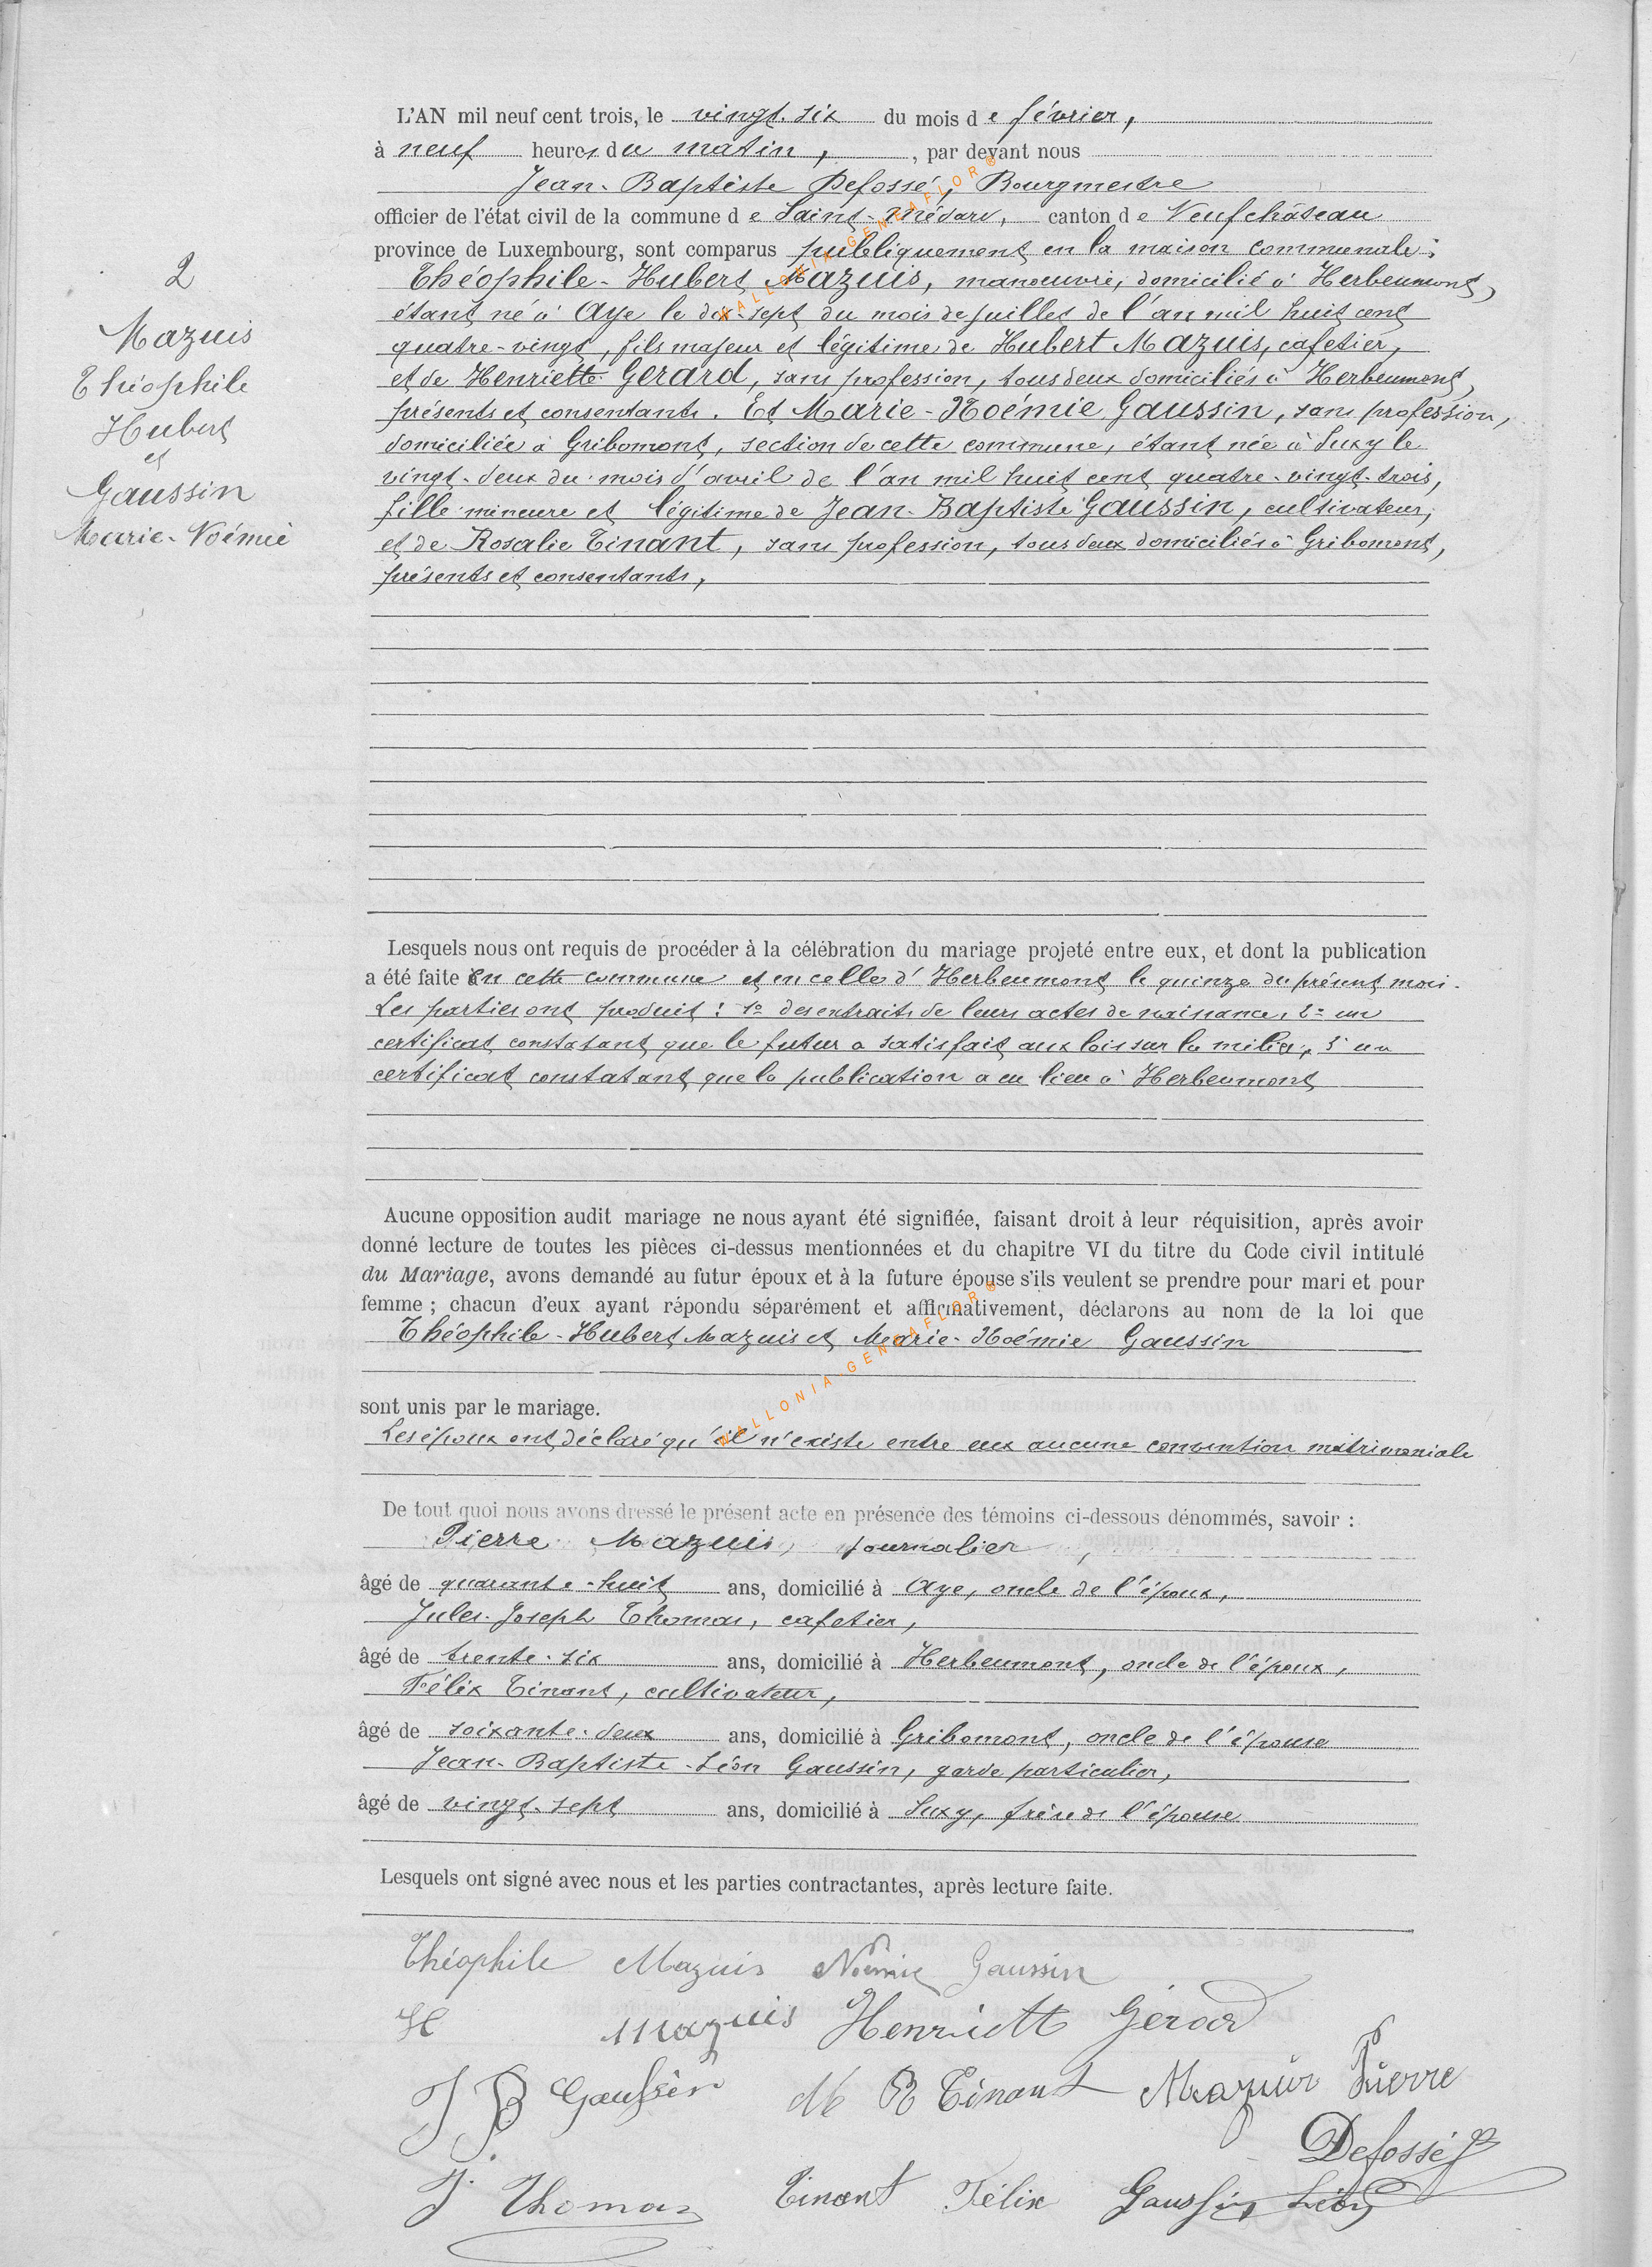 L'AN mil neuf cent trois, le vingt-six du mois de février,
à neuf heures du matin, , par devant nous
Jean-Baptiste Defossé, Bourgmestre
officier de l'état civil de la commune de Saint-Médard, canton de Neufchâteau
province de Luxembourg, sont comparus publiquement en la maison communale:
2
Mazuis
Théophile
Hubert
et
Gaussin
Marie-Noémie
Théophile-Hubert Mazuis, manoeuvre, domicilié à Herbeumont,
étant né à Aye le dix-sept du mois de juillet de l'an mil huit cent
quatre-vingt, fils majeur et légitime de Hubert Mazuis, cafetier,
et de Henriette Gerard, sans profession, tous deux domiciliés à Herbeumont,
présents et consentants. Et Marie-Noémie Gaussin, sans profession,
domiciliée à Gribomont, section de cette commune, étant née à Suxy le
vingt-deux du mois d'avril de l'an mil huit cent quatre-vingt-trois,
fille mineure et légitime de Jean-Baptiste Gaussin, cultivateur,
et de Rosalie Tinant, sans profession, tous deux domiciliés à Gribomont,
présents et consentants,
Lesquels nous ont requis de procéder à la célébration du mariage projeté entre eux, et dont la publication
a été faite en cette commune et en celle d'Herbeumont le quinze du présent mois.
Les parties ont produit : 1° des extraits de leurs actes de naissance, 2° un
certificat constatant que le futur a satisfait aux lois sur la milice, 3° un
certificat constatant que la publication a eu lieu à Herbeumont
Aucune opposition audit mariage ne nous ayant été signifiée, faisant droit à leur réquisition, après avoir
donné lecture de toutes les pièces ci-dessus mentionnées et du chapitre VI du titre du Code civil intitulé
du Mariage, avons demandé au futur époux et à la future épouse s'ils veulent se prendre pour mari et pour
femme ; chacun d'eux ayant répondu séparément et affirmativement, déclarons au nom de la loi que
Théophile-Hubert Mazuis et Marie-Noémie Gaussin
sont unis par le mariage.
Les époux ont déclaré qu'il n'existe entre eux aucune convention matrimoniale
De tout quoi nous avons dressé le présent acte en présence des témoins ci-dessous dénommés, savoir :
Pierre Mazuis, journalier,
âgé de quarante-huit ans, domicilié à Aye, oncle de l'époux,
Jules-Joseph Thomas, cafetier,
âgé de trente-six ans, domicilié à Herbeumont, oncle de l'époux,
Félix Tinant, cultivateur,
âgé de soixante-deux ans, domicilié à Gribomont, oncle de l'épouse
Jean-Baptiste-Léon Gaussin, garde particulier,
âgé de vingt-sept ans, domicilié à Suxy, frère de l'épouse
Lesquels ont signé avec nous et les parties contractantes, après lecture faite.
Théophile Mazuis Noémie Gaussin
H Mazuis Henriette Gérard
J B Gaussin M R Tinant Mazuis Pierre
Defossé
J. Thomas Tinant Félix Gaussin Léon
WALLONIA GENEAFLOR ®
WALLONIA GENEAFLOR ®